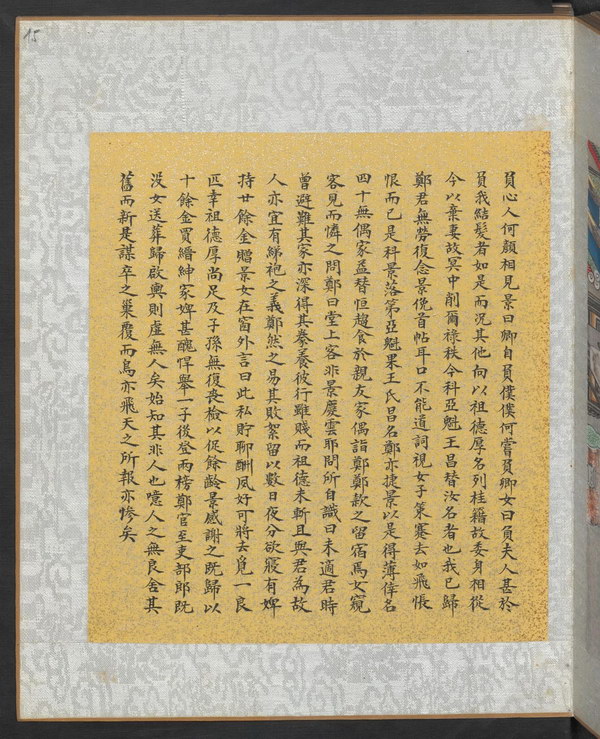 15
負心人何顏相見景曰卿自負僕僕何嘗負卿女曰負夫人甚於
負我結髮者如是而況其他向以祖德厚名列桂籍故委身相從
今以棄妻故冥中削爾祿秩今科亞魁王昌替汝名者也我已歸
鄭君無勞復念景俛首帖耳口不能道詞視女子策蹇去如飛悵
恨而已是科景落第亞魁果王氏昌名鄭亦捷景以是得薄倖名
四十無偶家益替恒趨食於親友家偶詣鄭鄭款之留宿焉女窺
客見而憐之問鄭曰堂上客非景慶雲耶問所自識曰未適君時
曾避難其家亦深得其豢養彼行雖賤而祖德未斬且與君為故
人亦宜有綈袍之義鄭然之易其敗絮留以數日夜分欲寢有婢
持廿餘金贈景女在窗外言曰此私貯聊酬夙好可將去覓一良
匹幸祖德厚尚足及子孫無復喪檢以促餘齡景感謝之既歸以
十餘金買縉紳家婢甚醜悍舉一子後登兩榜鄭官至吏部郎既
沒女送葬歸啟輿則虛無人矣始知其非人也噫人之無良舍其
舊而新是謀卒之巢覆而鳥亦飛天之所報亦慘矣